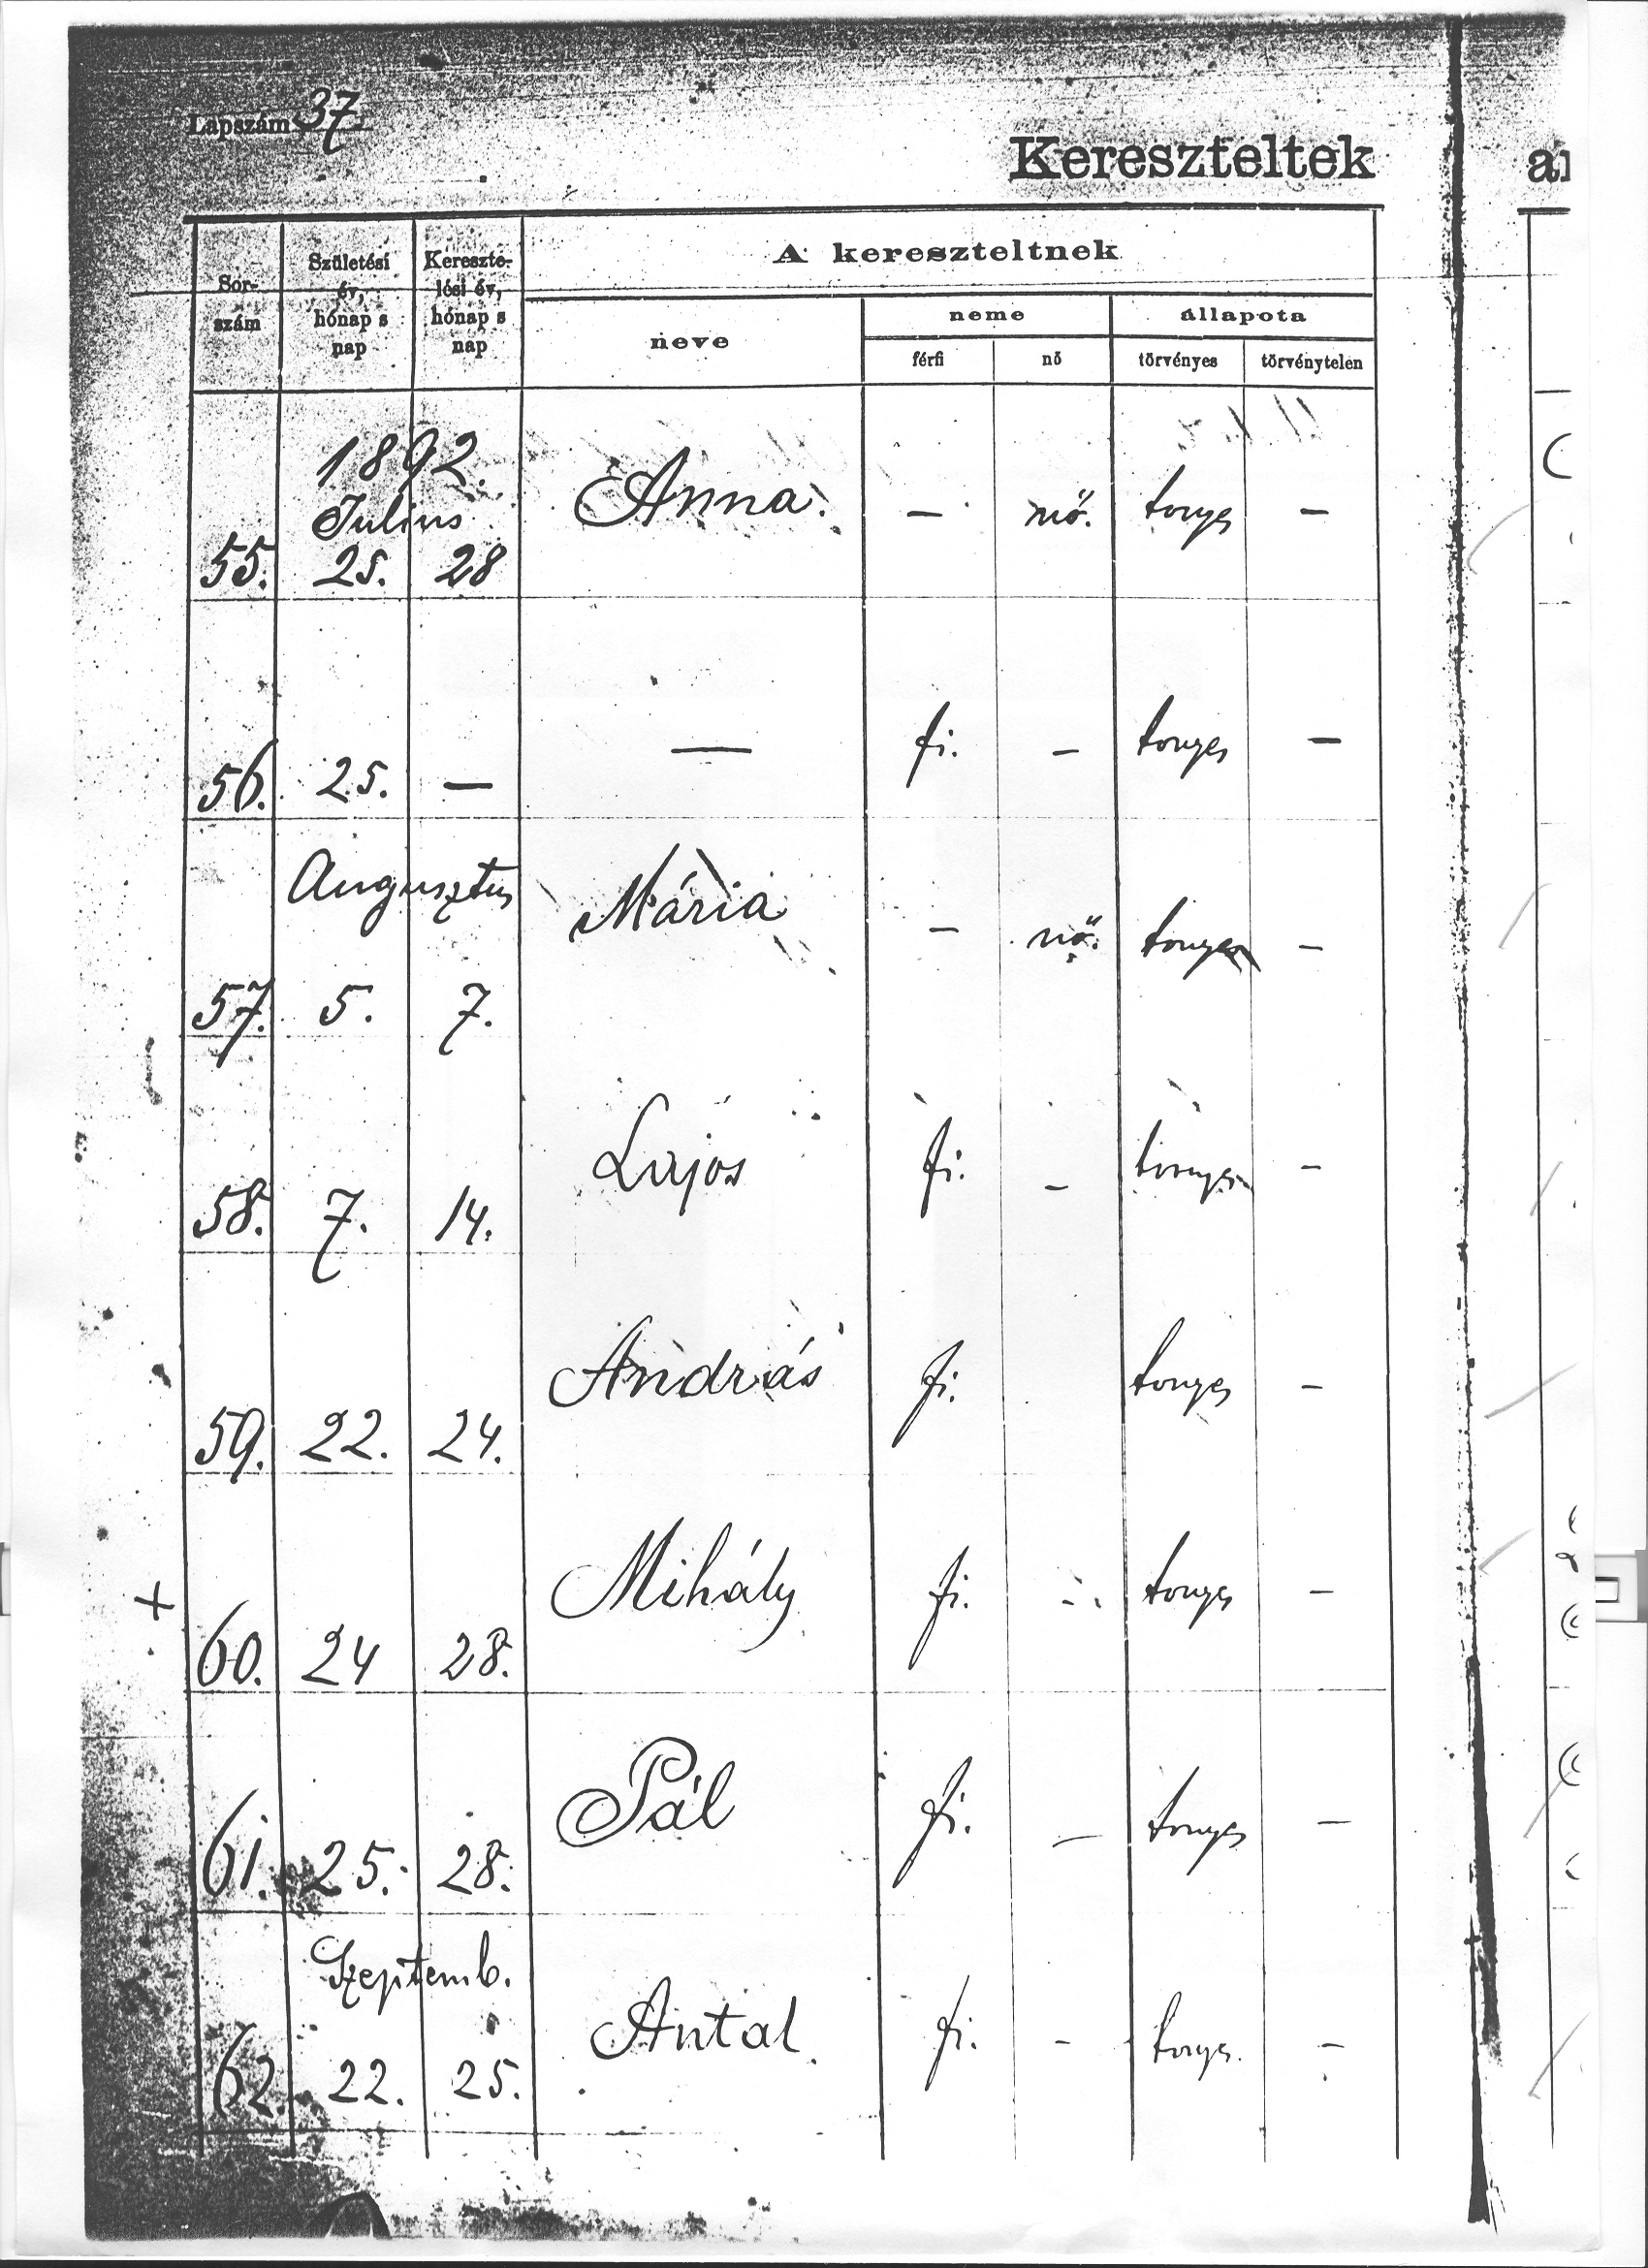 Lapszám 37.
Kereszteltek
Sor-
szám
Születési
év,
hónap s
nap
Kereszte-
lési év,
hónap s
nap
A kereszteltnek
neve
neme
állapota
férfi
nő
törvényes
törvénytelen
1892.
Julius
55. 25. 28 Anna. — nő. — 
56. 25. — — fi. — —
Augusztus
57. 5. 7. Mária — nő. —
58. 7. 14. Lajos fi. — —
59. 22. 24. András fi. —
+ 60. 24 28. Mihály fi. — —
61. 25. 28. Pál fi. — —
Szeptemb.
62. 22. 25. Antal fi. — —